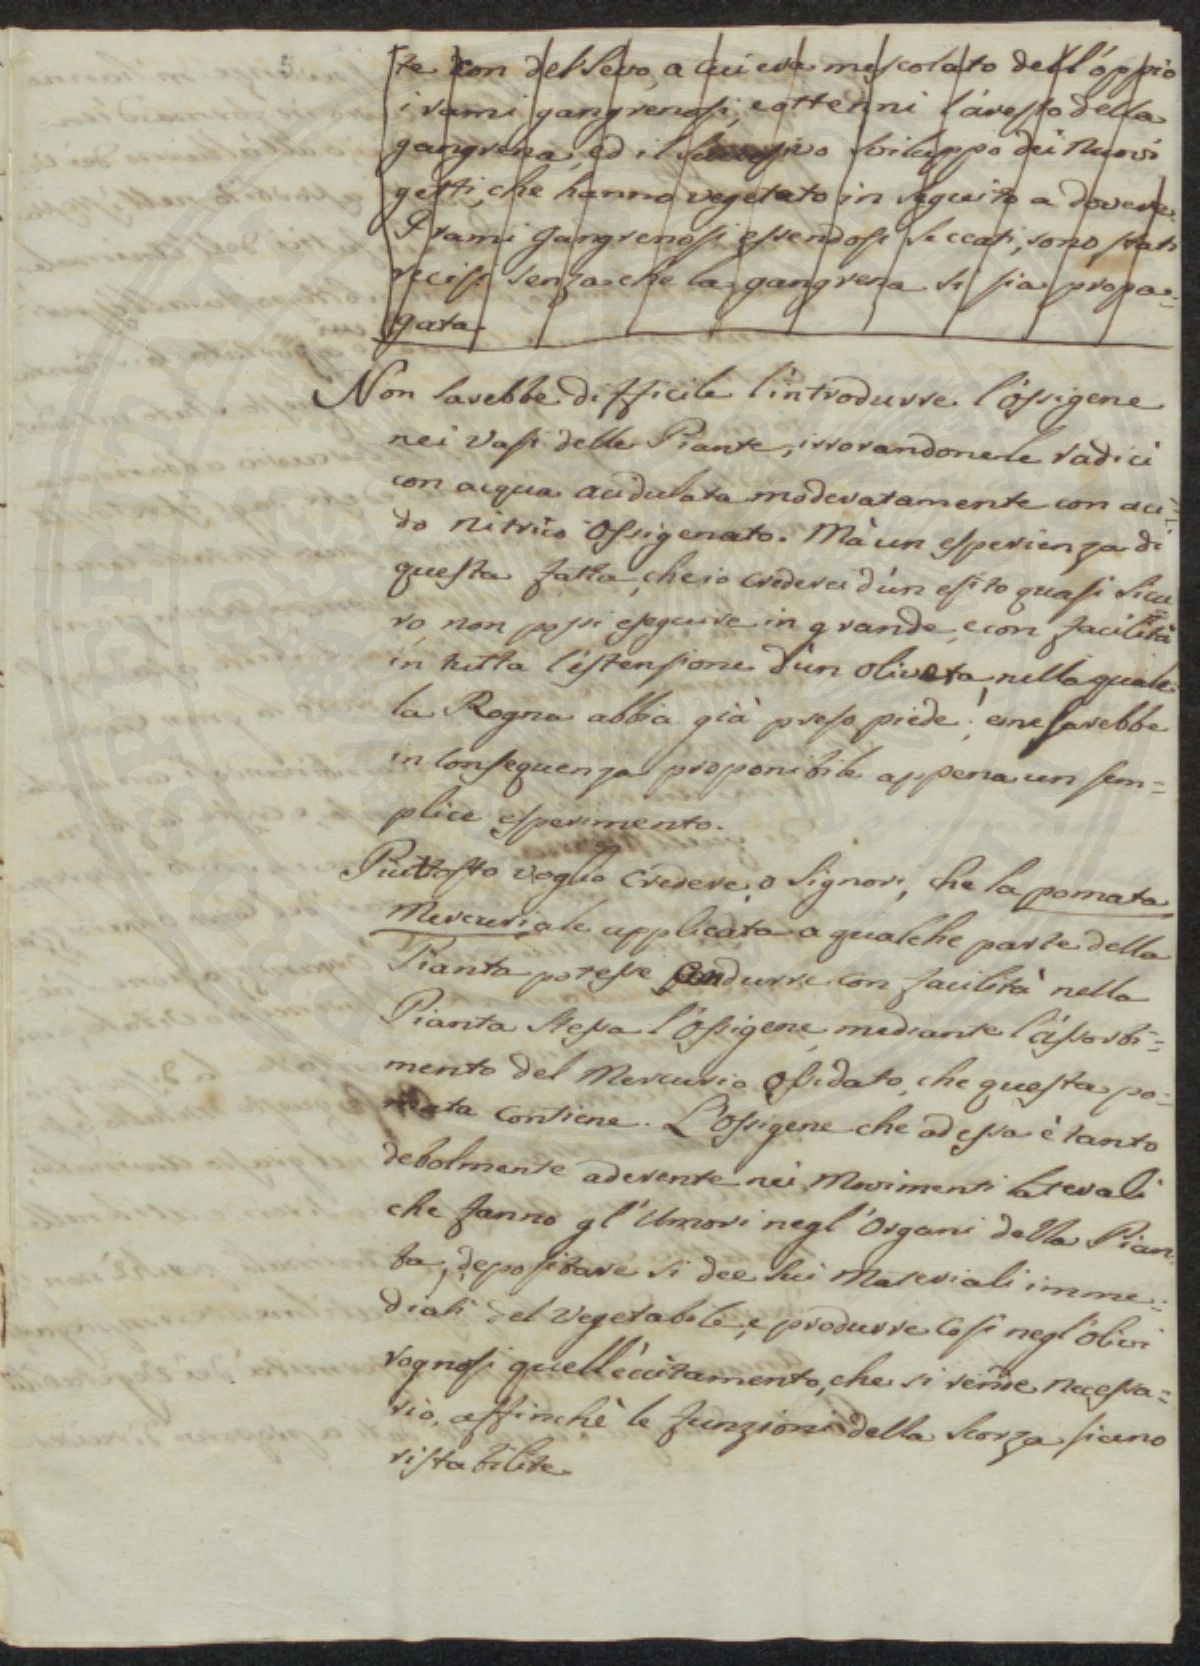 te con del Sevo, a cui era mescolato dell'oppio
i rami gangrenosi, e ottenni l'aresto della
gangrena, ed il successivo sviluppo dei nuovi
getti, che hanno vegetato in seguito a dovere.
I rami gangrenosi essendosi seccati, sono stati
recisi senza che la gangrena si sia propa=
gata.
Non sarebbe difficile l'introdurre l'ossigene
nei Vasi delle Piante, irrorandone le radici
con acqua acidulata moderatamente con aci=
do nitrico ossigenato. Mà un esperienza di
questa fatta, che io crederei d'un esito quasi sicu=
ro, non possi eseguire in grande, e con facilità
in tutta l'estensione d'un oliveta, nella quale
la Rogna abbia già preso piede; e ne sarebbe
in conseguenza proponibile appena un sem=
plice esperimento.
Piuttosto voglio credere, o Signori, che la pomata
Mercuriale applicata a qualche parte della
Pianta potesse condurre con facilità nella
Pianta stessa l'ossigene, mediante l'assorbi=
mento del Mercurio ossidato, che questa po=
mata contiene. L'Ossigene che ad essa è tanto
debolmente aderente nei Movimenti laterali
che fanno gl'Umori negl'Organi della Pian
ta, depositare si dee sui Materiali imme=
diati del Vegetabile, e produrre così negl'Olivi
rognosi quell'eccitamento, che si rende necessa=
rio, affinchè le funzioni della scorza siano
ristabilite.